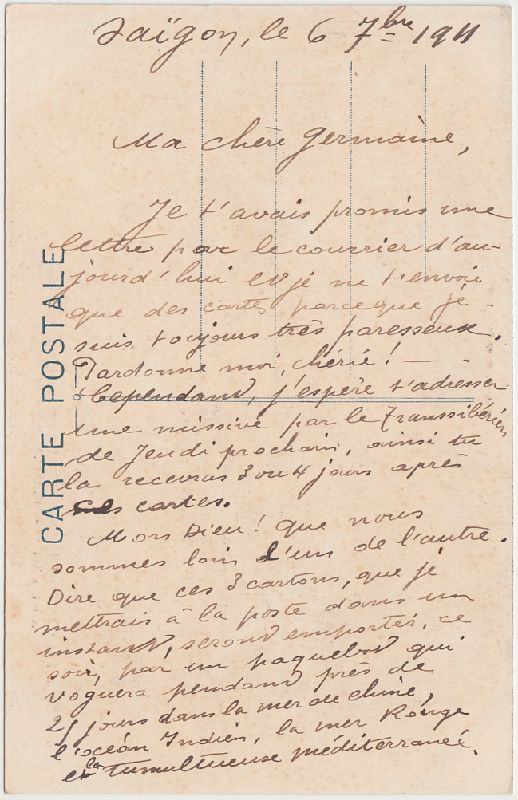 Saïgon, le 6 7bre 1911
Ma chère Germaine,
Je t'avais promis une
lettre par le courrier d'au-
jourd'hui et je ne t'envoie
que des cartes parceque je
suis toujours très paresseux.
Pardonne moi, chérie! —
Cependant, j'espère t'adresser
une missive par le Transsibérien
de Jeudi prochain, ainsi tu
la recevras 3 ou 4 jours après
ces cartes.
Mon Dieu! que nous
sommes loin l'un de l'autre.
Dire que ces 3 cartons, que je
mettrais à la poste dans un
instant, seront emportés, ce
soir, par un paquebot qui
voguera pendant près de
25 jours dans la mer de chine,
l'océan Indien, la mer Rouge
et la tumultueuse méditerranée.
CARTE POSTALE